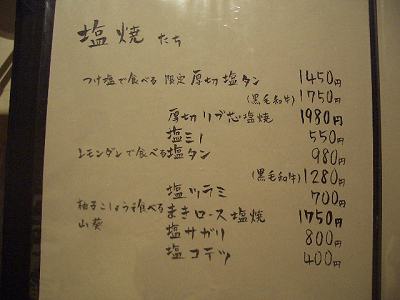 塩焼たち
つけ塩で食べる 限定 厚切 塩タン 1450円
(黒毛和牛) 1750円
厚切 リブ芯 塩焼 1980円
塩ミノ 550円
レモンダレで食べる 塩タン 980円
(黒毛和牛) 1280円
塩ツラミ 700円
柚子こしょうで食べる まきロース 塩焼 1750円
山葵
塩サガリ 800円
塩コテツ 400円